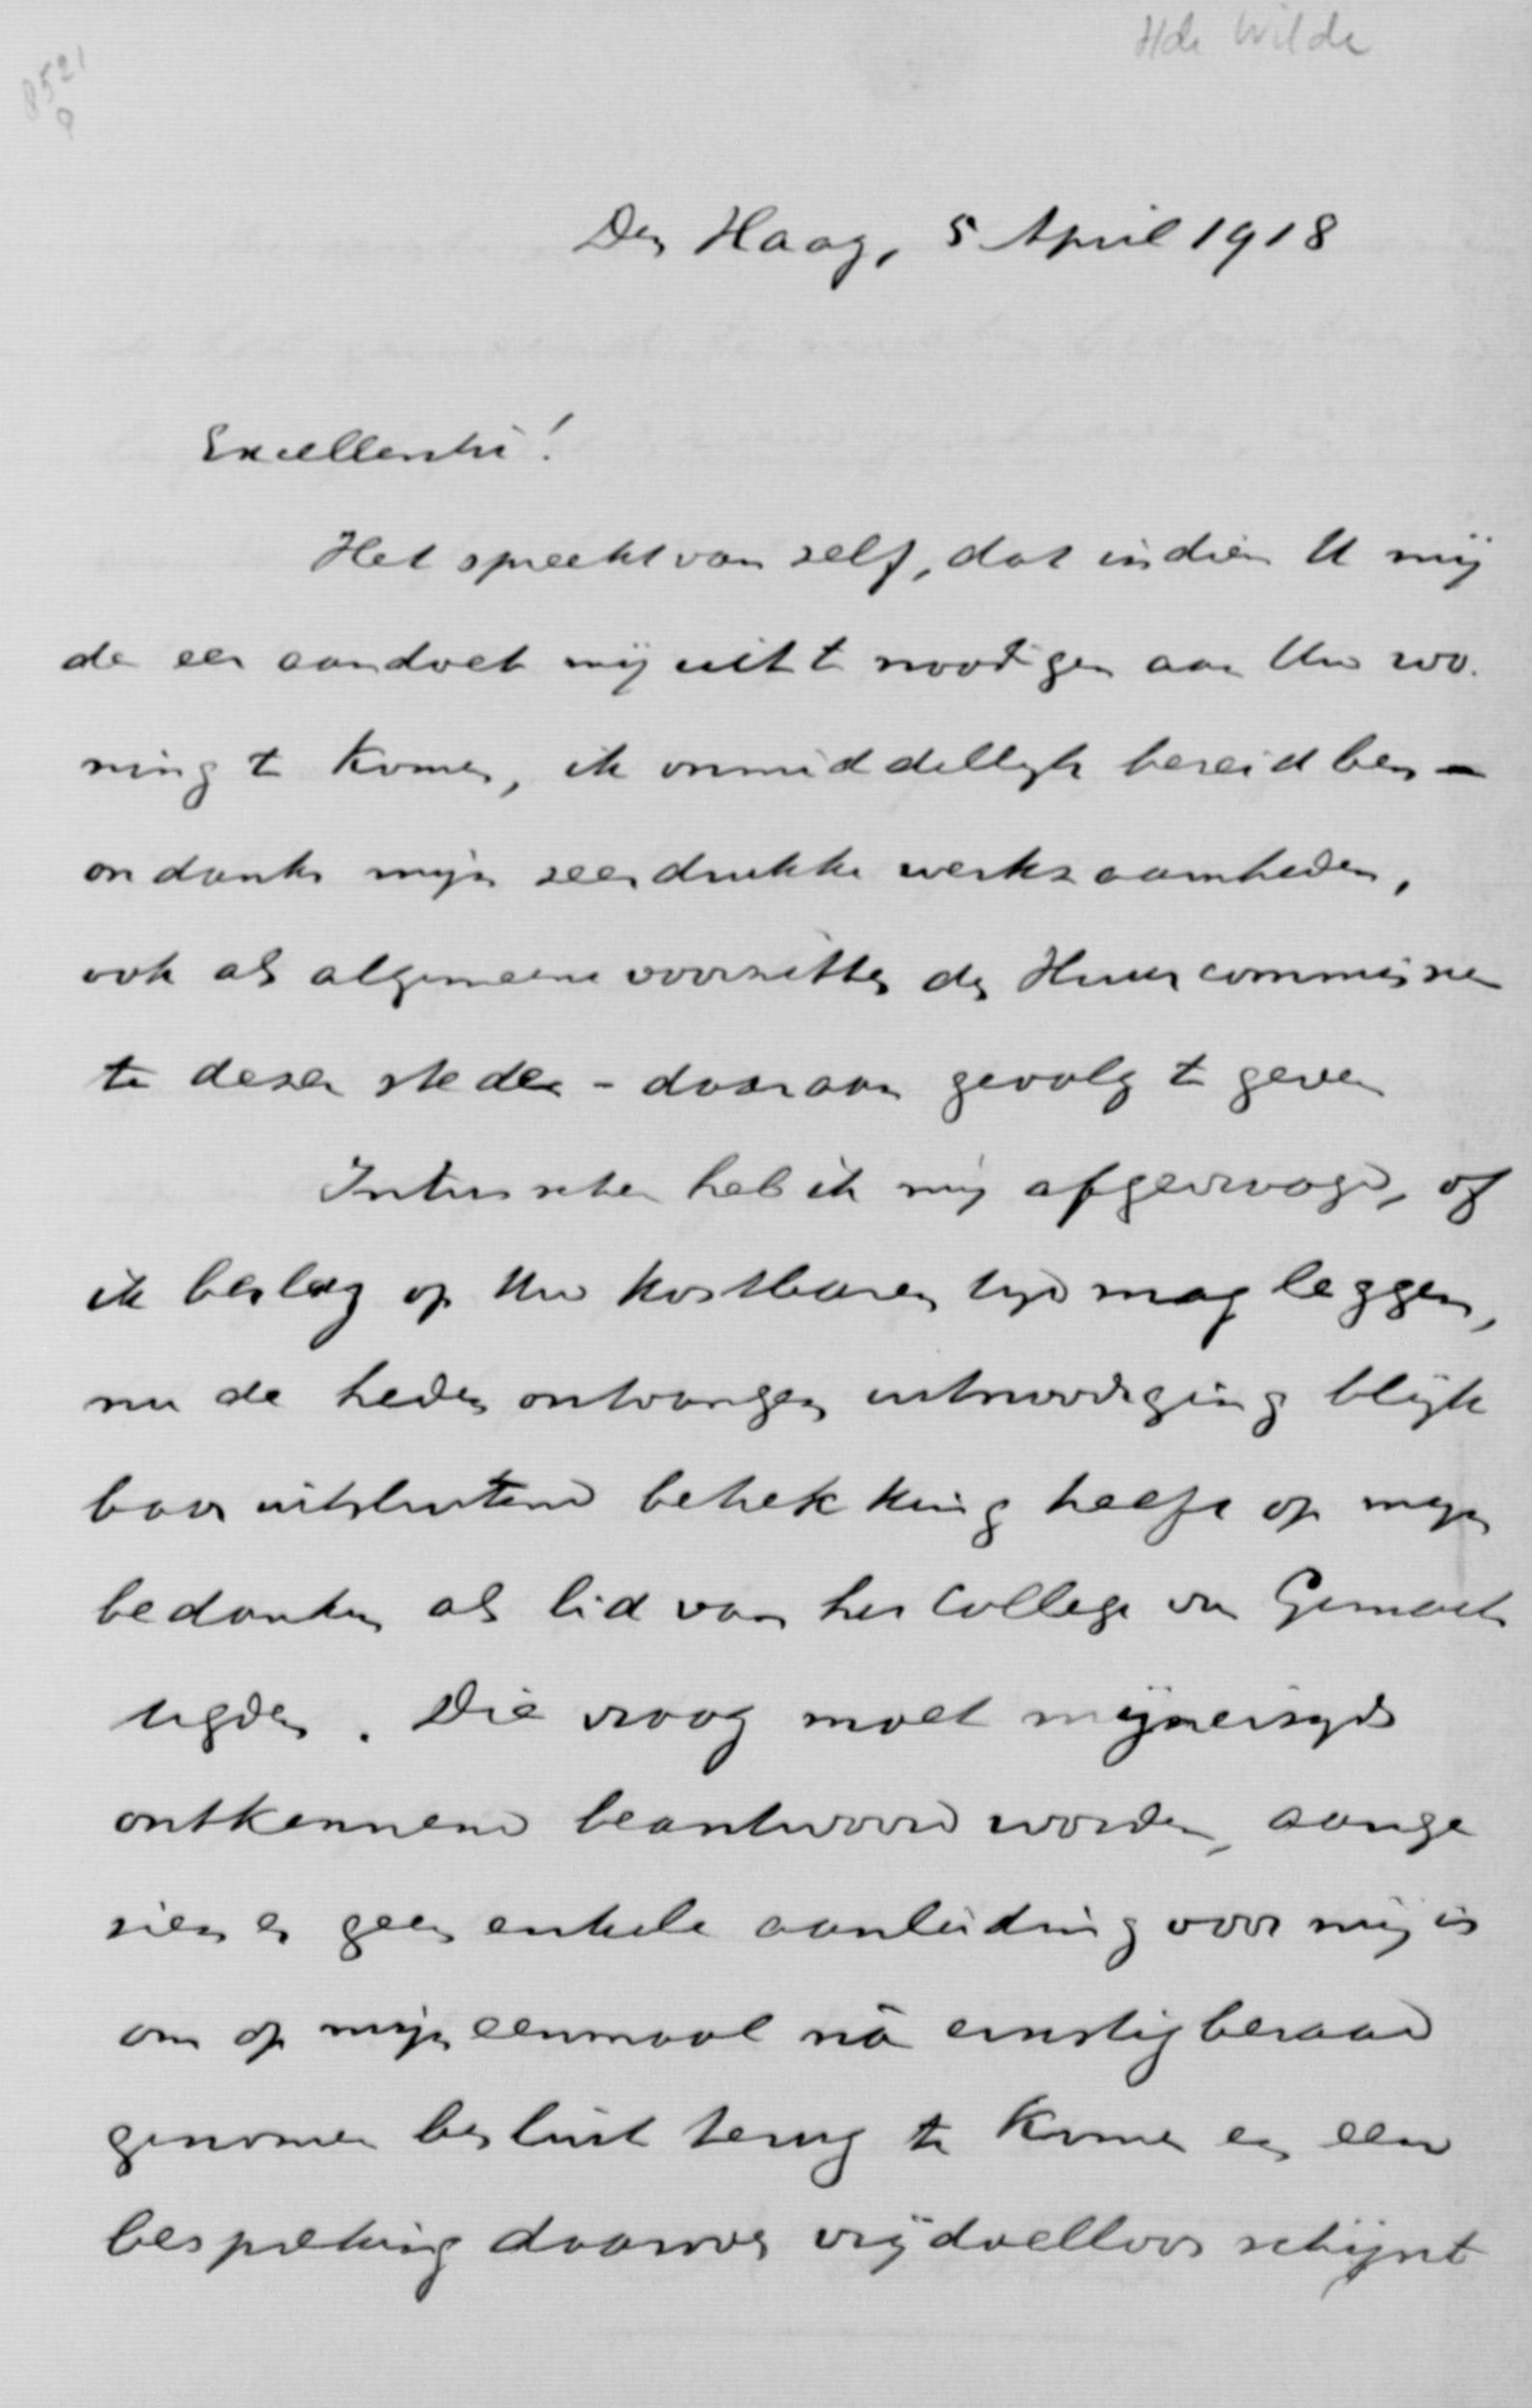 Hde Wilde
8521
9
Den Haag, 5 April 1918
Excellentie!
Het spreekt van zelf, dat indien U mij
de eer aandoet mij uit te noodigen aan Uw wo-
ning te komen, ik onmiddellijk bereid ben –
ondanks mijn zeer drukke werkzaamheden,
ook als algemeene voorzitter der Huurcommissien
te dezer stede – daaraan gevolg te geven
Intusschen heb ik mij afgevraagd, of
ik beslag op Uw kostbaren tijd mag leggen,
nu de heden ontvangen uitnoodiging blijk
baar uitsluitend betrekking heeft op mijn
bedanken als lid van het College van Gemach
tigden. Die vraag moet mijnerzijds
ontkennend beantwoord worden, aange
zien er geen enkele aanleiding voor mij is
om op mijn eenmaal nà ernstig beraad
genomen besluit terug te komen en een
bespreking daarover vrij doelloos schijnt